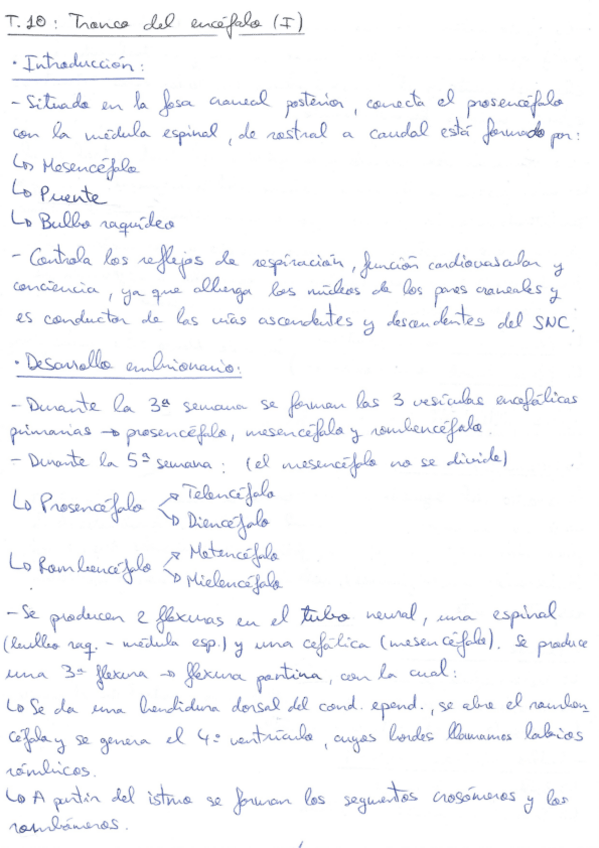 T.10: Tronco del encéfalo (I)
· Introducción:
- Situado en la fosa craneal posterior, conecta el prosencéfalo
con la médula espinal, de rostral a caudal está formado por:
↳ Mesencéfalo
↳ Puente
↳ Bulbo raquídeo
- Controla los reflejos de respiración, función cardiovascular y
conciencia, ya que alberga los núcleos de los pares craneales y
es conductor de las vías ascendentes y descendentes del SNC.
· Desarrollo embrionario:
- Durante la 3ª semana se forman las 3 vesículas encefálicas
primarias → prosencéfalo, mesencéfalo y rombencéfalo.
- Durante la 5ª semana: (el mesencéfalo no se divide)
↳ Prosencéfalo ↗ Telencéfalo
↘ Diencéfalo
↳ Rombencéfalo ↗ Metencéfalo
↘ Mielencéfalo
- Se producen 2 flexuras en el tubo neural, una espinal
(bulbo raq. - médula esp.) y una cefálica (mesencéfalo). Se produce
una 3ª flexura → flexura pontina, con la cual:
↳ Se da una hendidura dorsal del cond. epend., se abre el romben
céfalo y se genera el 4º ventrículo, cuyos bordes llamamos labios
rómbicos.
↳ A partir del istmo se forman los segmentos crosómeros y los
rombómeros.